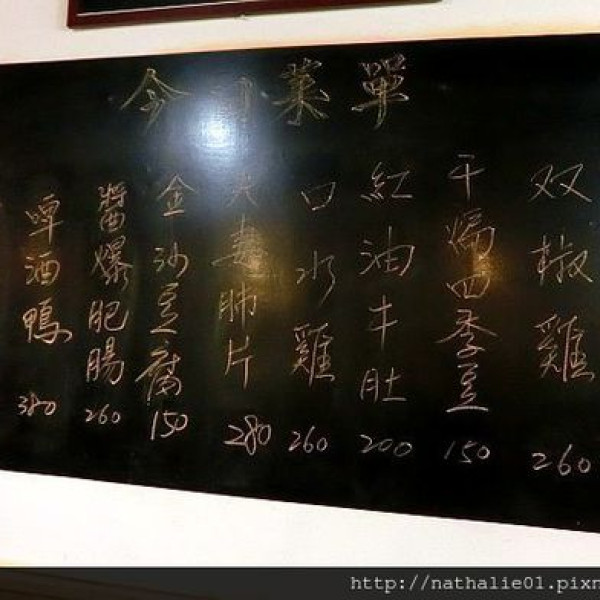 今日菜單
双椒雞
260
干煸四季豆
150
紅油牛肚
200
口水雞
260
夫妻肺片
280
金沙豆腐
150
醬爆肥腸
260
啤酒鴨
380
http://nathalie01.pixn